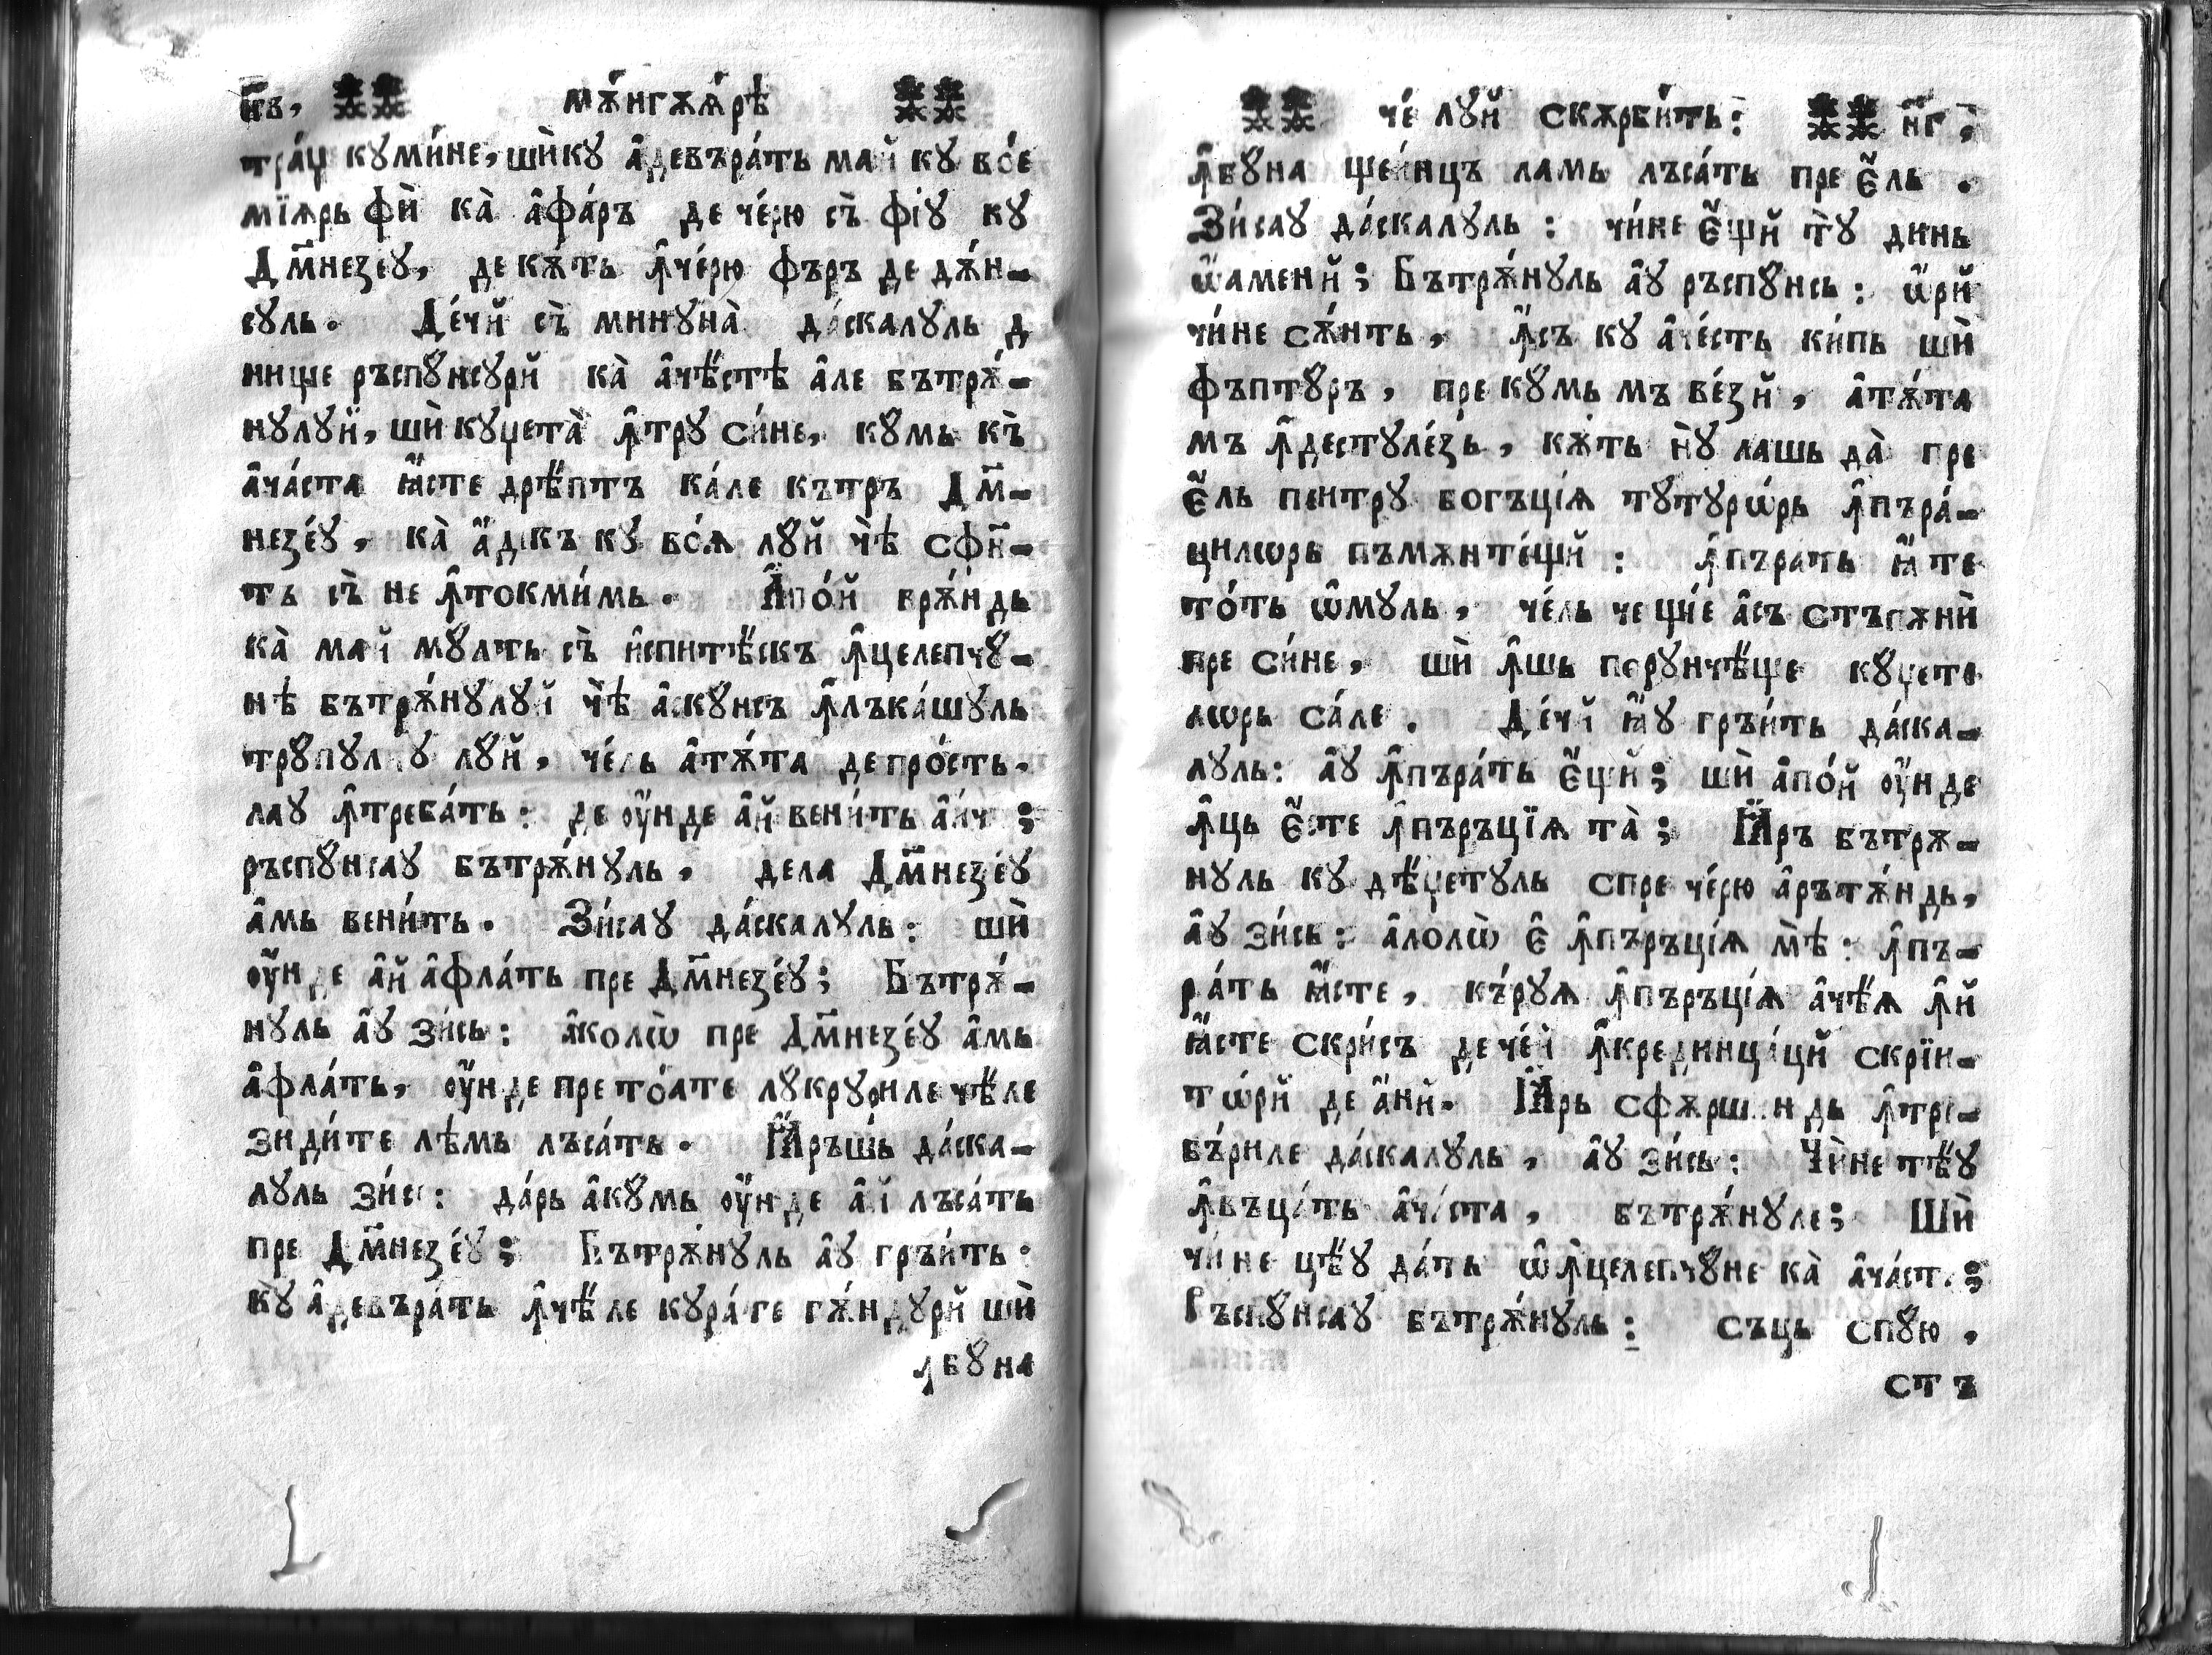 н҃в, мѫ́нгѫѧ́рѣ
тра́џ кумі́не, шѝку а҆девъра́ть май ку во́е
мїѧрь фѝ ка̀ а҆фа́ръ де че́рю съ̀ фіꙋ ку
Дм҃незеꙋ, де кѫть ꙟ҆че́рю фъръ де дѫ́н-
сꙋль. Де́чй съ̀ минꙋна̀ да́скалꙋль д
нище ръспꙋ́нсꙋрй ка̀ а҆чѣ́стѣ а҆ле бътрѫ́-
нꙋлꙋй, шѝ куџета̀ ꙟ҆трꙋ си́не, кꙋмь къ
а҆ча́ста ꙗ҆́сте дрѣ́птъ ка́ле кътръ Дм҃-
незе́ꙋ, ка̀ а҆́декъ ку во́ѧ лꙋй чѣ̀ сфн҃-
тъ съ̀ не ꙟ҆токми́мь. А҆по́й врѫ́ндь
ка̀ май мꙋлть съ̀ и҆спитѣ́скъ ꙟ҆целепчꙋ-
нѣ бътрѫ́нꙋлꙋй чѣ̀ а҆скꙋнсъ ꙟ҆лъка́шꙋль
трꙋпꙋлꙋ лꙋй, че́ль а҆тѫ́та де про́сть.
лаꙋ ꙟ҆треба́ть: де ѹ҆́нде а҆й вени́ть а҆и́ч ;
ръспꙋ́нсаꙋ бътрѫ́нꙋль, дела Дм҃незе́ꙋ
а҆мь вени́ть. Зи́саꙋ да́скалꙋль: шѝ
ѹ҆́нде а҆й а҆фла́ть пре Дм҃незе́ꙋ; Бътрѫ́-
нꙋль а҆ꙋ зи́сь: а҆колѡ̀ пре Дм҃незе́ꙋ а҆мь
а҆фла́ть, ѹ҆́нде пре то́ате лꙋкрꙋриле чѣ́ле
зиди́те лѣмь лъса́ть. Ꙗ҆́ръшь да́ска-
лꙋль зи́сь: да́рь а҆кꙋмь ѹ҆́нде а҆й лъса́ть
пре Дм҃незе́ꙋ; Бътрѫ́нꙋль а҆ꙋ гръи́ть:
кꙋ а҆девъра́ть ꙟ҆чѣ́ле кура́те гѫ́ндꙋрй шѝ
ꙟ҆вꙋна
че́ лꙋ́й скѫрби́ть: н҃г,
ꙟ҆вꙋна щеи́нцъ ламь лъса́ть пре є҆́ль .
Зи́саꙋ да́скалꙋль : чи́не є҆́щй тꙋ̀ динь
ѡ҆́аменй; Бътрѫ́нꙋль а҆ꙋ ръспꙋ́нсь: ѡ҆́рй
чи́не сѫ́нть, ꙟ҆съ ку а҆че́сть ки́пь шѝ
фъптꙋ́ръ, пре кꙋмь мъ ве́зй, а҆тѫ́та
мъ ꙟ҆дестꙋле́зь, кѫ́ть нꙋ̀ лашь да̀ пре
є҆́ль пентрꙋ богъці́ѧ тꙋтꙋрѡ́рь ꙟ҆пъра́-
цилѡрь пъмѫнте́щй : ꙟ҆пърать ꙗ҆́сте
то́ть ѡ҆́мꙋль, че́ль че щи́е а҆съ стъпѫнѝ
пре си́не, шѝ ꙟ҆шь порꙋнчѣ́ще куџете
лѡрь са́ле . Де́чй ꙗ҆ꙋ гръи́ть да́ска-
лꙋль: а҆ꙋ ꙟ҆пъра́ть є҆́щй; шѝ а҆по́й ѹ҆́нде
ꙟ҆ць є҆́сте ꙟ҆пъръці́ѧ та̀; Ꙗ҆́ръ бътрѫ-
нꙋль ку дѣ́џетꙋль спре че́рю а҆рътѫ́ндь,
а҆ꙋ зи́сь: а҆лолѡ̀ є҆̀ ꙟ҆пъръці́ѧ мѣ̀: ꙟ҆пъ-
ра́ть ꙗ҆́сте, къ́рꙋѧ ꙟ҆пъръці́ѧ а҆чѣ́ѧ ꙟ҆й
ꙗ҆́сте скри́съ де че́й ꙟ҆крединца́цй скрїи-
тѡ́рй де а҆́нй. Ꙗ҆рь сфѫрши́ндь ꙟ҆тре-
бъ́риле да́скалꙋль, а҆ꙋ зи́сь: Чи́не тѣ́ꙋ
ꙟ҆въца́ть а҆ча́ста, бътрѫ́нꙋле; Шѝ
чи́не цѣ́ꙋ да́ть ѡ҆ꙟ҆целепчꙋне ка̀ а҆ча́ста;
Ръспꙋ́нсаꙋ бътрѫ́нꙋль: съць спꙋю,
стъ